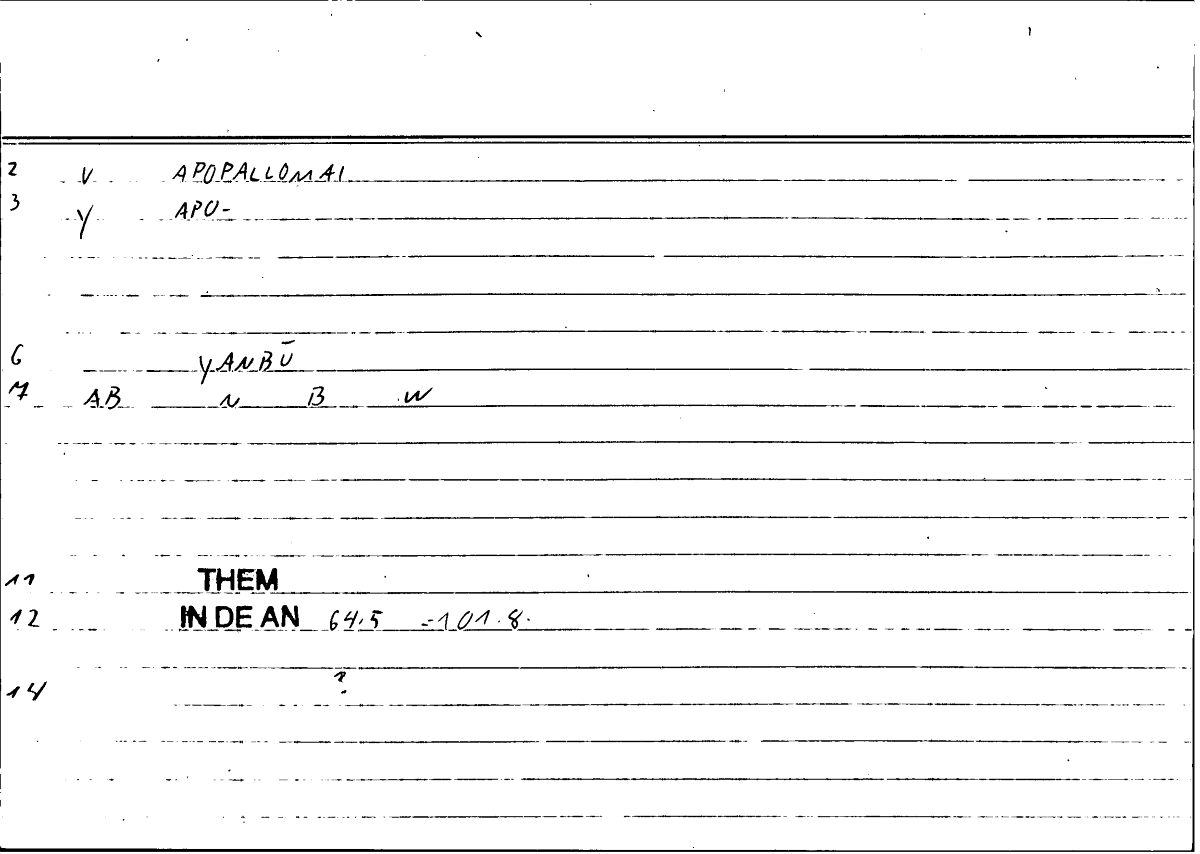 2 V APOPALLOMAI
3 Y APO-
6 YANBŪ
7 AB N B W
11 THEM
12 IN DE AN 64.5 -101.8.
14 ?